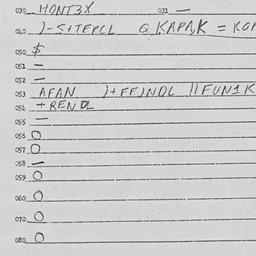 030 HONT3X 031 —
040 )-S+TEPCL Q KAPA,K = KOP
050 $
051 —
052 —
053 AFAN )+FF)NDL //FUN1K
054 +RENDL
055 —
056 O
057 O
058 —
059 O
060 O
070 O
080 O